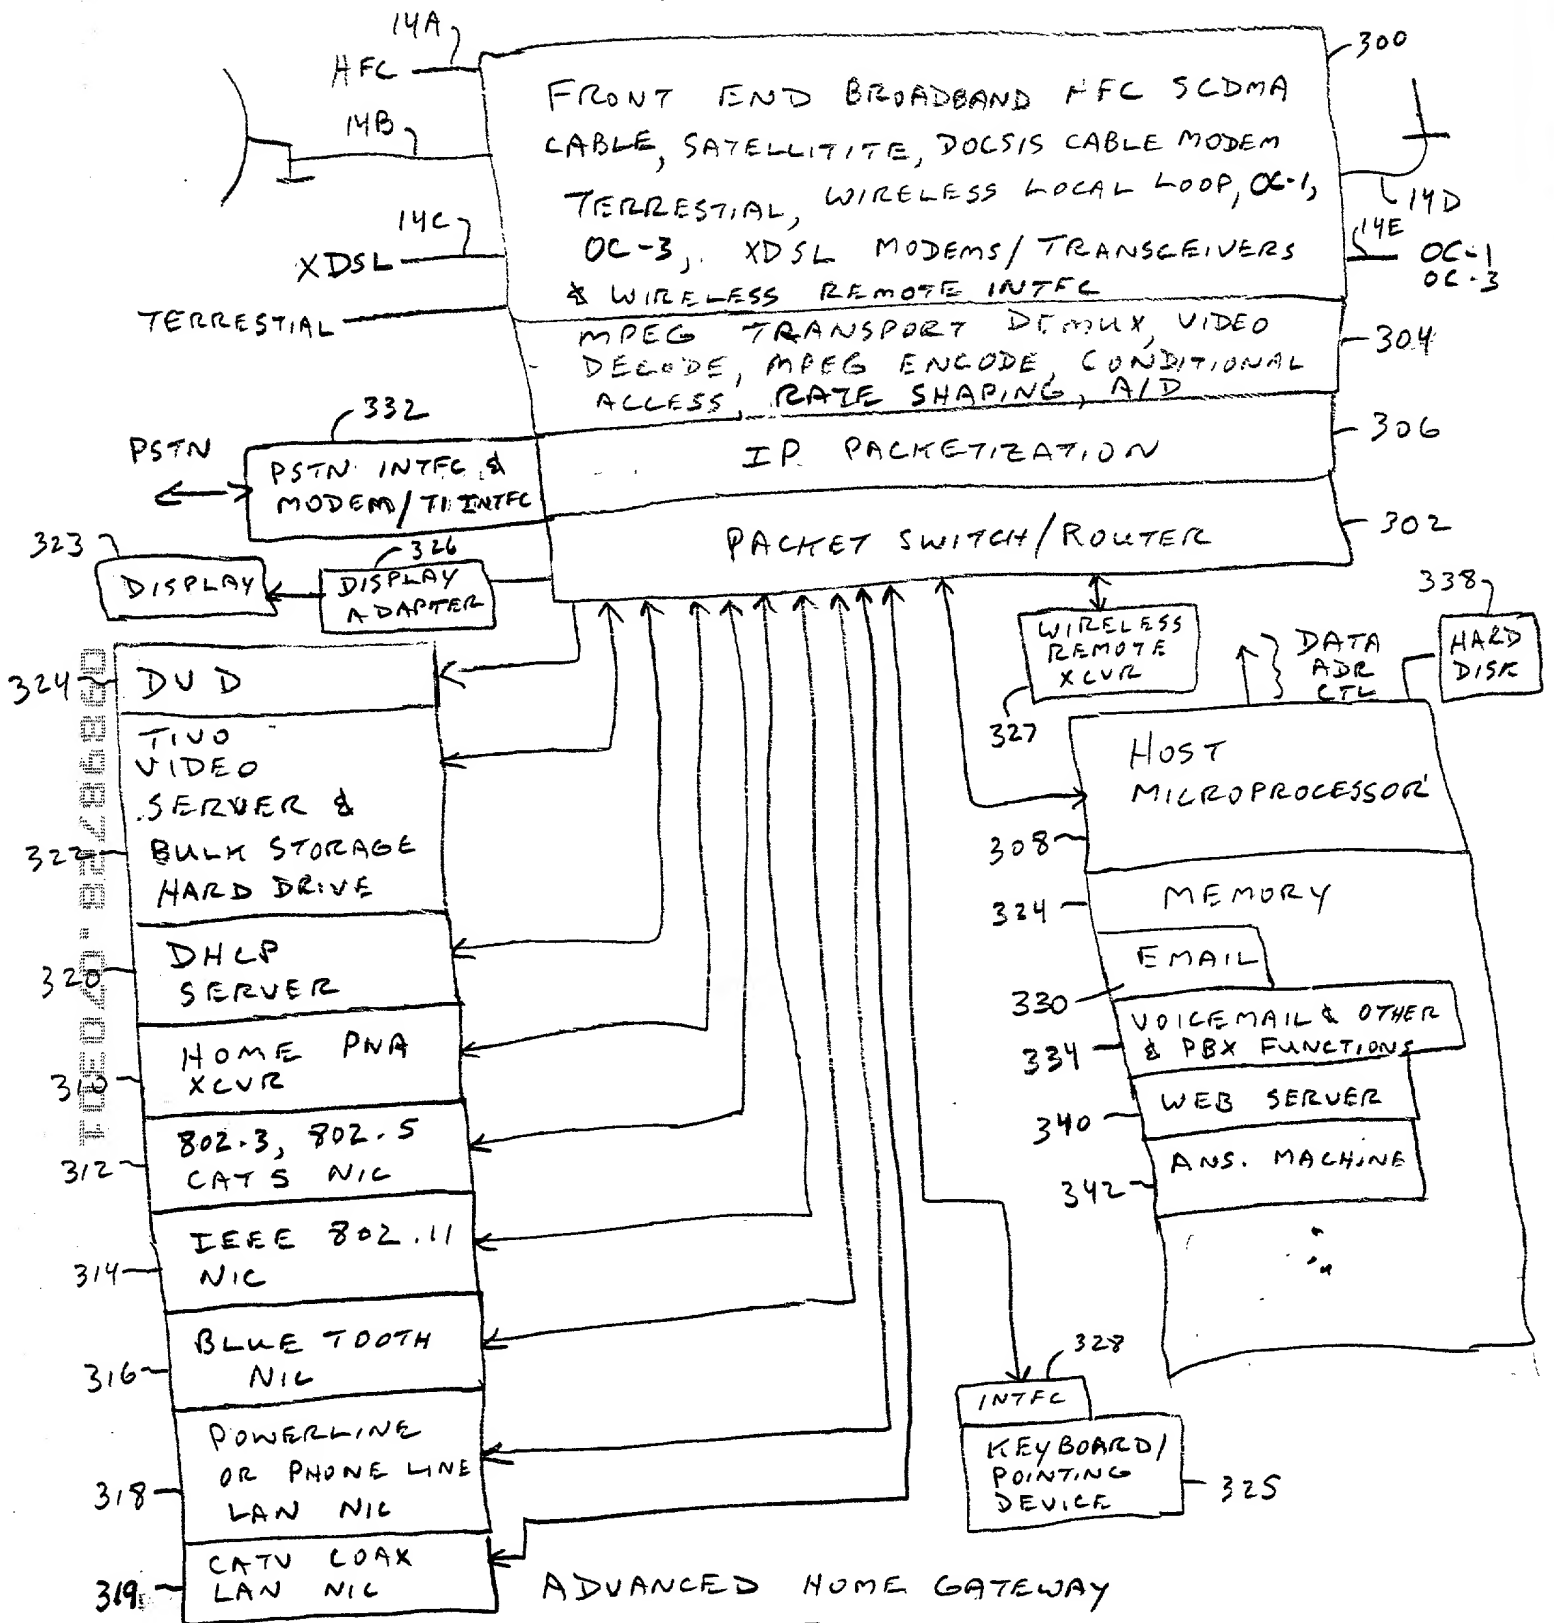 14A
HFC
300
FRONT END BROADBAND HFC SCDMA
14B
CABLE, SATELLITITE, DOCSIS CABLE MODEM
TERRESTIAL, WIRELESS LOCAL LOOP, OC-1,
14D
14C
14E
OC-3, XDSL MODEMS/TRANSCEIVERS
XDSL
OC-1
OC-3
& WIRELESS REMOTE INTFC
TERRESTIAL
MPEG TRANSPORT DEMUX, VIDEO
DECODE, MPEG ENCODE, CONDITIONAL
ACCESS, RATE SHAPING, A/D
304
332
PSTN
PSTN INTFC &
MODEM/T1 INTFC
IP PACKETIZATION
306
PACKET SWITCH/ROUTER
302
323
DISPLAY
326
DISPLAY
ADAPTER
WIRELESS
REMOTE
XCVR
327
DATA
ADR
CTL
338
HARD
DISK
324
DVD
TIVO
VIDEO
SERVER &
BULK STORAGE
HARD DRIVE
322
DHCP
SERVER
320
HOME PNA
XCVR
310
802.3, 802.5
CAT 5 NIC
312
IEEE 802.11
NIC
314
BLUE TOOTH
NIC
316
POWERLINE
OR PHONE LINE
LAN NIC
318
CATV COAX
LAN NIC
319
HOST
MICROPROCESSOR
308
MEMORY
324
EMAIL
330
VOICEMAIL & OTHER
& PBX FUNCTIONS
334
WEB SERVER
340
ANS. MACHINE
342
328
INTFC
KEYBOARD/
POINTING
DEVICE
325
ADVANCED HOME GATEWAY